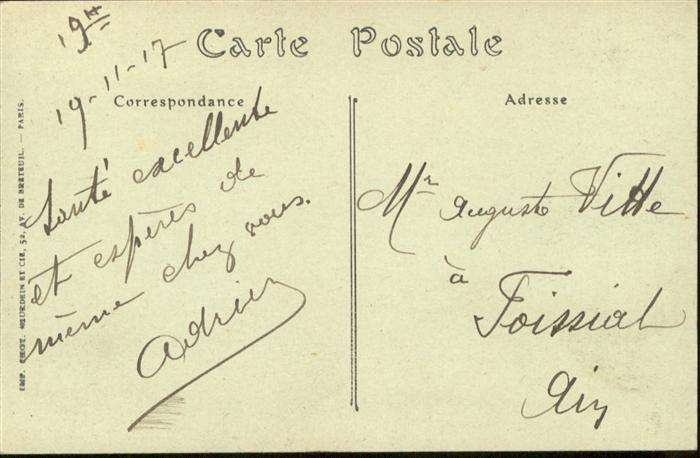 Carte Postale
19H
19-11-17
Correspondance
Santé excellente
et espères de
même chez vous.
Adrien
Adresse
Mr Auguste Vitte
à
Foissiat
Ain
IMP. PHOT. NEURDEIN ET CIE, 52, AV. DE BRETEUIL. — PARIS.